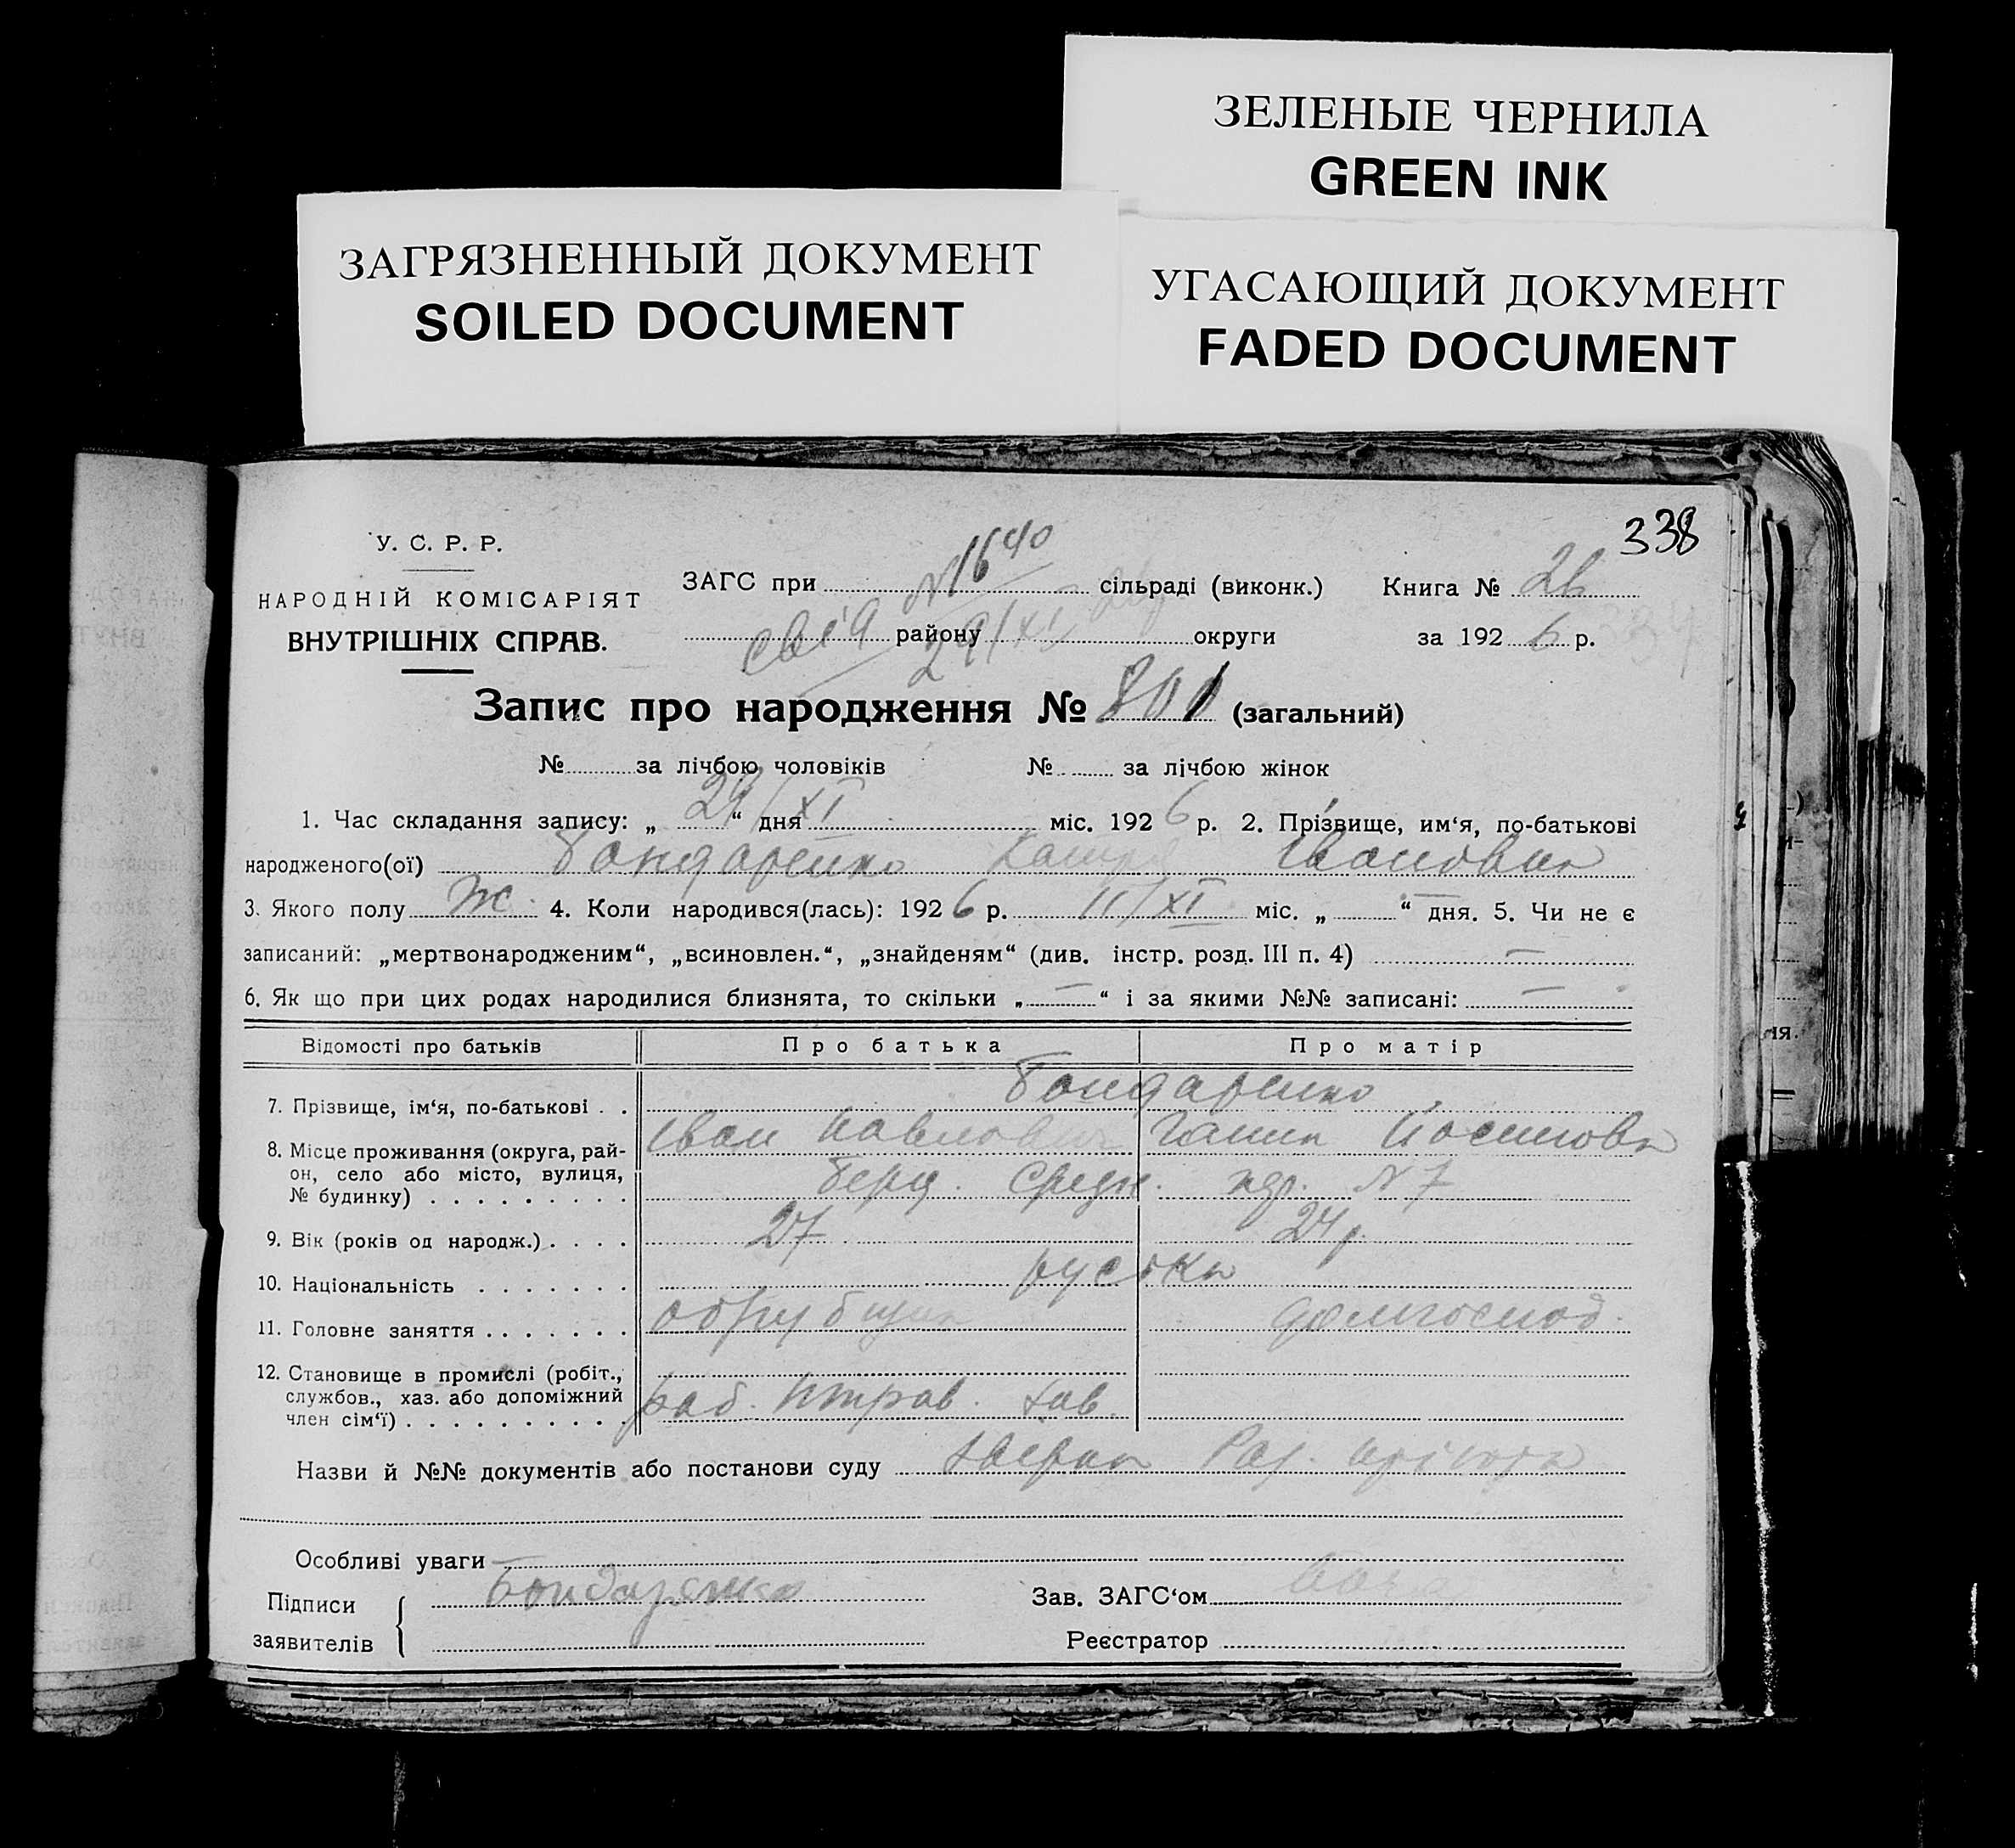 ЗЕЛЕНЫЕ ЧЕРНИЛА
GREEN INK
ЗАГРЯЗНЕННЫЙ ДОКУМЕНТ
SOILED DOCUMENT
УГАСАЮЩИЙ ДОКУМЕНТ
FADED DOCUMENT
338
У. С. Р. Р.
НАРОДНІЙ КОМІСАРІЯТ
ВНУТРІШНІХ СПРАВ.
ЗАГС при №1640 сільраді (виконк.) Книга № 2в
району 29/XI округи за 1926 р.
Запис про народження № 801 (загальний)
№ за лічбою чоловіків № за лічбою жінок
1. Час складання запису: „ 29/XI “ дня міс. 1926 р. 2. Прізвище, им‘я, по-батькові
народженого(ої) Бондаренко Івановна
3. Якого полу Ж 4. Коли народився(лась): 1926 р. 11/XI міс. „ — “ дня. 5. Чи не є
записаний: „мертвонародженим“, „всиновлен.“, „знайденям“ (див. інстр. розд. III п. 4) —
6. Як що при цих родах народилися близнята, то скільки „ — “ і за якими №№ записані: —
Відомості про батьків Про батька Про матір
7. Прізвище, ім‘я, по-батькові . . Бондаренко
Іван Павлович Ганна Йосиповна
8. Місце проживання (округа, рай-
он, село або місто, вулиця,
№ будинку) . . . . . . . . . Берд. Средн. №7
9. Вік (років од народж.) . . . . 27 24 р.
10. Національність . . . . . . . руська
11. Головне заняття . . . . . . . обрубщик домгоспод.
12. Становище в промислі (робіт.,
службов., хаз. або допоміжний
член сім‘ї) . . . . . . . . . . раб.
Назви й №№ документів або постанови суду
Особливі уваги —
Підписи Бондаренко Зав. ЗАГС‘ом
заявителів Реєстратор